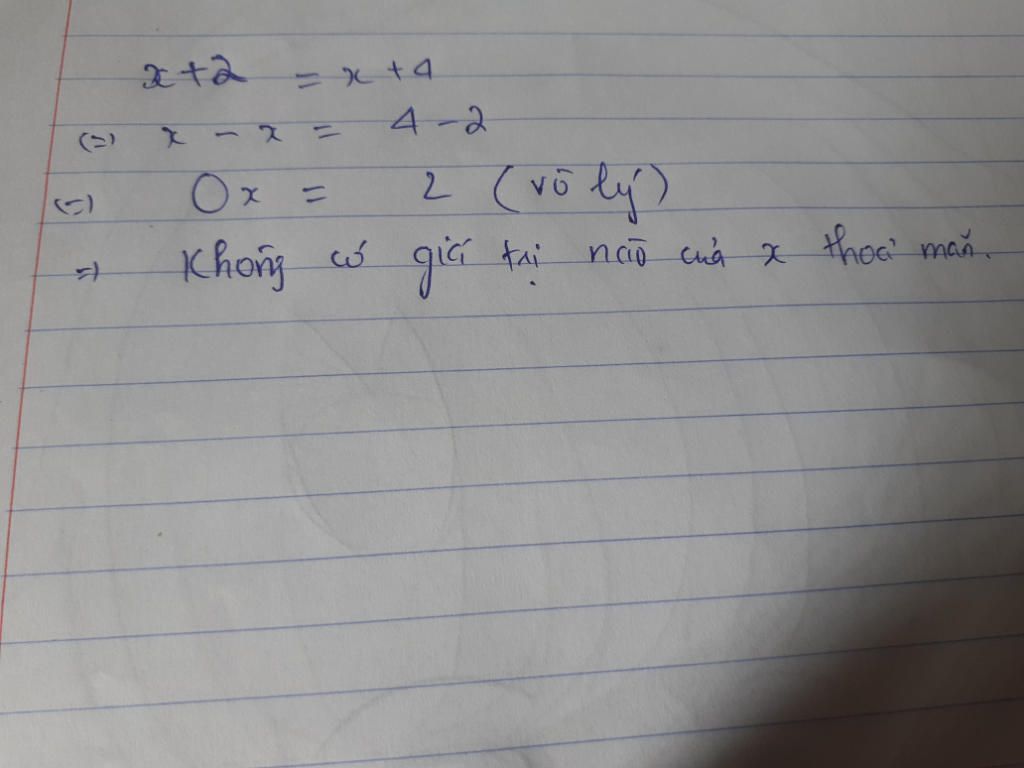 x+2 = x+4
(=) x - x = 4-2
(=) 0x = 2 (vô lý)
=) Không có giá trị nào của x thoả mãn.